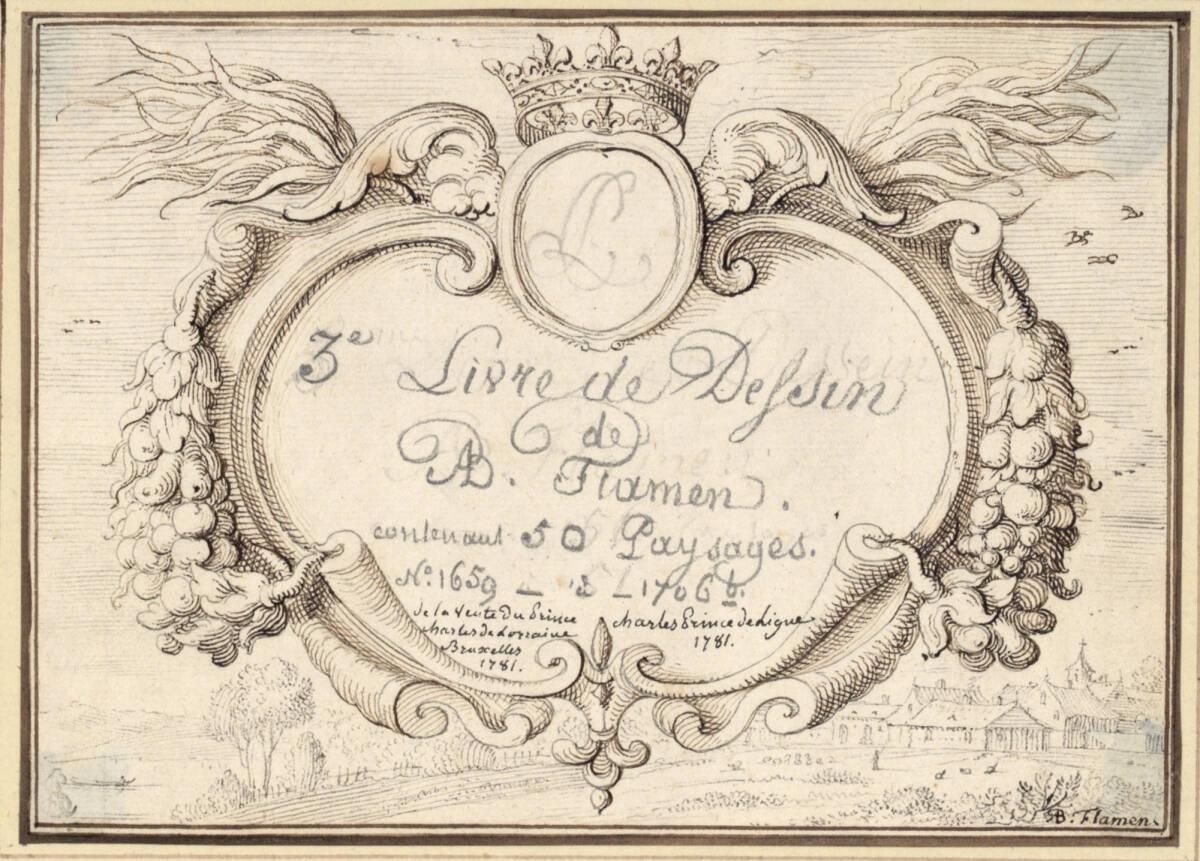 L
3e Livre de Dessin
de
AB. Flamen.
contenant 50 Paysages.
No. 1659 — à — 1706 b.
de la Vente Du Prince
charles de Lorraine
Bruxelles
1781.
charles Prince de Ligne
1781.
AB: Flamen.